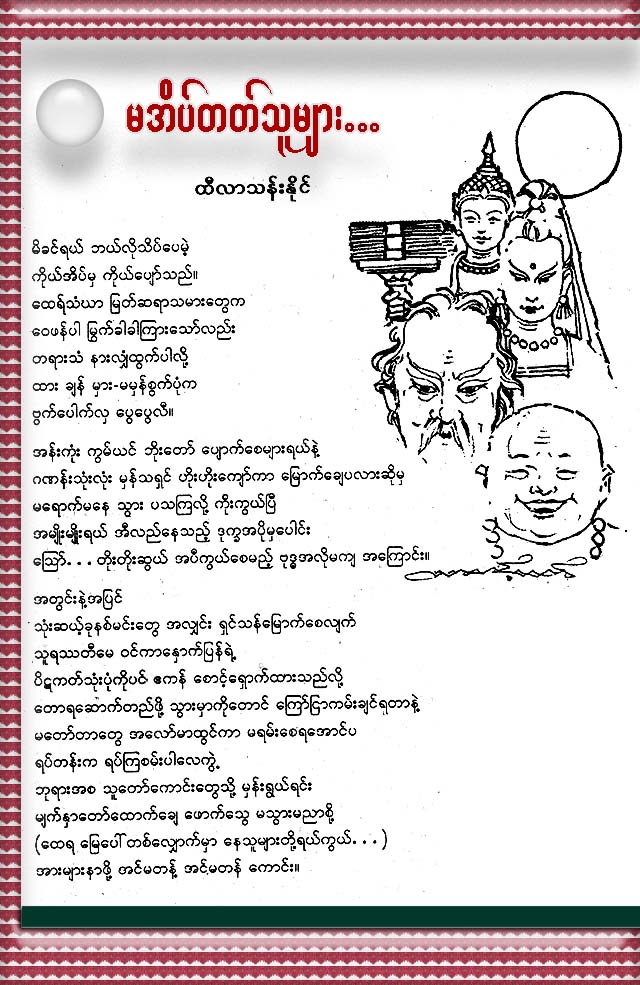 မအိပ်တတ်သူများ...
ထီလာသန်းနိုင်
မိခင်ရယ် ဘယ်လိုသိပ်ပေမဲ့
ကိုယ်အိပ်မှ ကိုယ်ပျော်သည်။
ထေရ်သံဃာ မြတ်ဆရာသမားတွေက
ဝေဖန်ပါ မြွက်ခါခါကြားသော်လည်း
တရားသံ နားလျှံထွက်ပါလို့
ထား ချန် မှား-မမှန်စွက်ပုံက
ဗွက်ပေါက်လှ ပွေပွေလီ။
အန်းကုံး ကွမ်ယင် ဘိုးတော် ပျောက်စေများရယ်နဲ့
ဂဏန်းသုံးလုံး မှန်သရှင် ဟိုးဟိုးကျော်ကာ မြောက်ချေပလားဆိုမှ
မရောက်မနေ သွား ပသကြလို့ ကိုးကွယ်ပြီ
အမျိုးမျိုးရယ် အီလည်နေသည့် ဒုက္ခအပိုမှပေါင်း
ဩော်...တိုးတိုးဆွယ် အပီကွယ်စေမည့် ဗုဒ္ဓအလိုမကျ အကြောင်း။
အတွင်းနဲ့အပြင်
သုံးဆယ့်ခုနစ်မင်းတွေ အလျှင်း ရှင်သန်မြောက်စေလျက်
သူရဿတီမေ ဝင်ကာနှောက်ပြန်ရဲ့
ပိဋကတ်သုံးပုံကိုပင် ဧကန် စောင့်ရှောက်ထားသည်လို့
တောရဆောက်တည်ဖို့ သွားမှာကိုတောင် ကြော်ငြာကမ်းချင်ရှတာနဲ့
မတော်တာတွေ အလော်မာထွင်ကာ မရမ်းစေရအောင်ပ
ရပ်တန်းက ရပ်ကြစမ်းပါလေကွဲ့
ဘုရားအစ သူတော်ကောင်းတွေသို့ မှန်းရွယ်ရင်း
မျက်နှာတော်ထောက်ချေ ဖောက်သွေ မသွားမညာစို့
(ထေရ မြေပေါ်တစ်လျှောက်မှာ နေသူများတို့ရယ်ကွယ်...)
အားများနာဖို့ အင်မတန့် အင်မတန် ကောင်း။